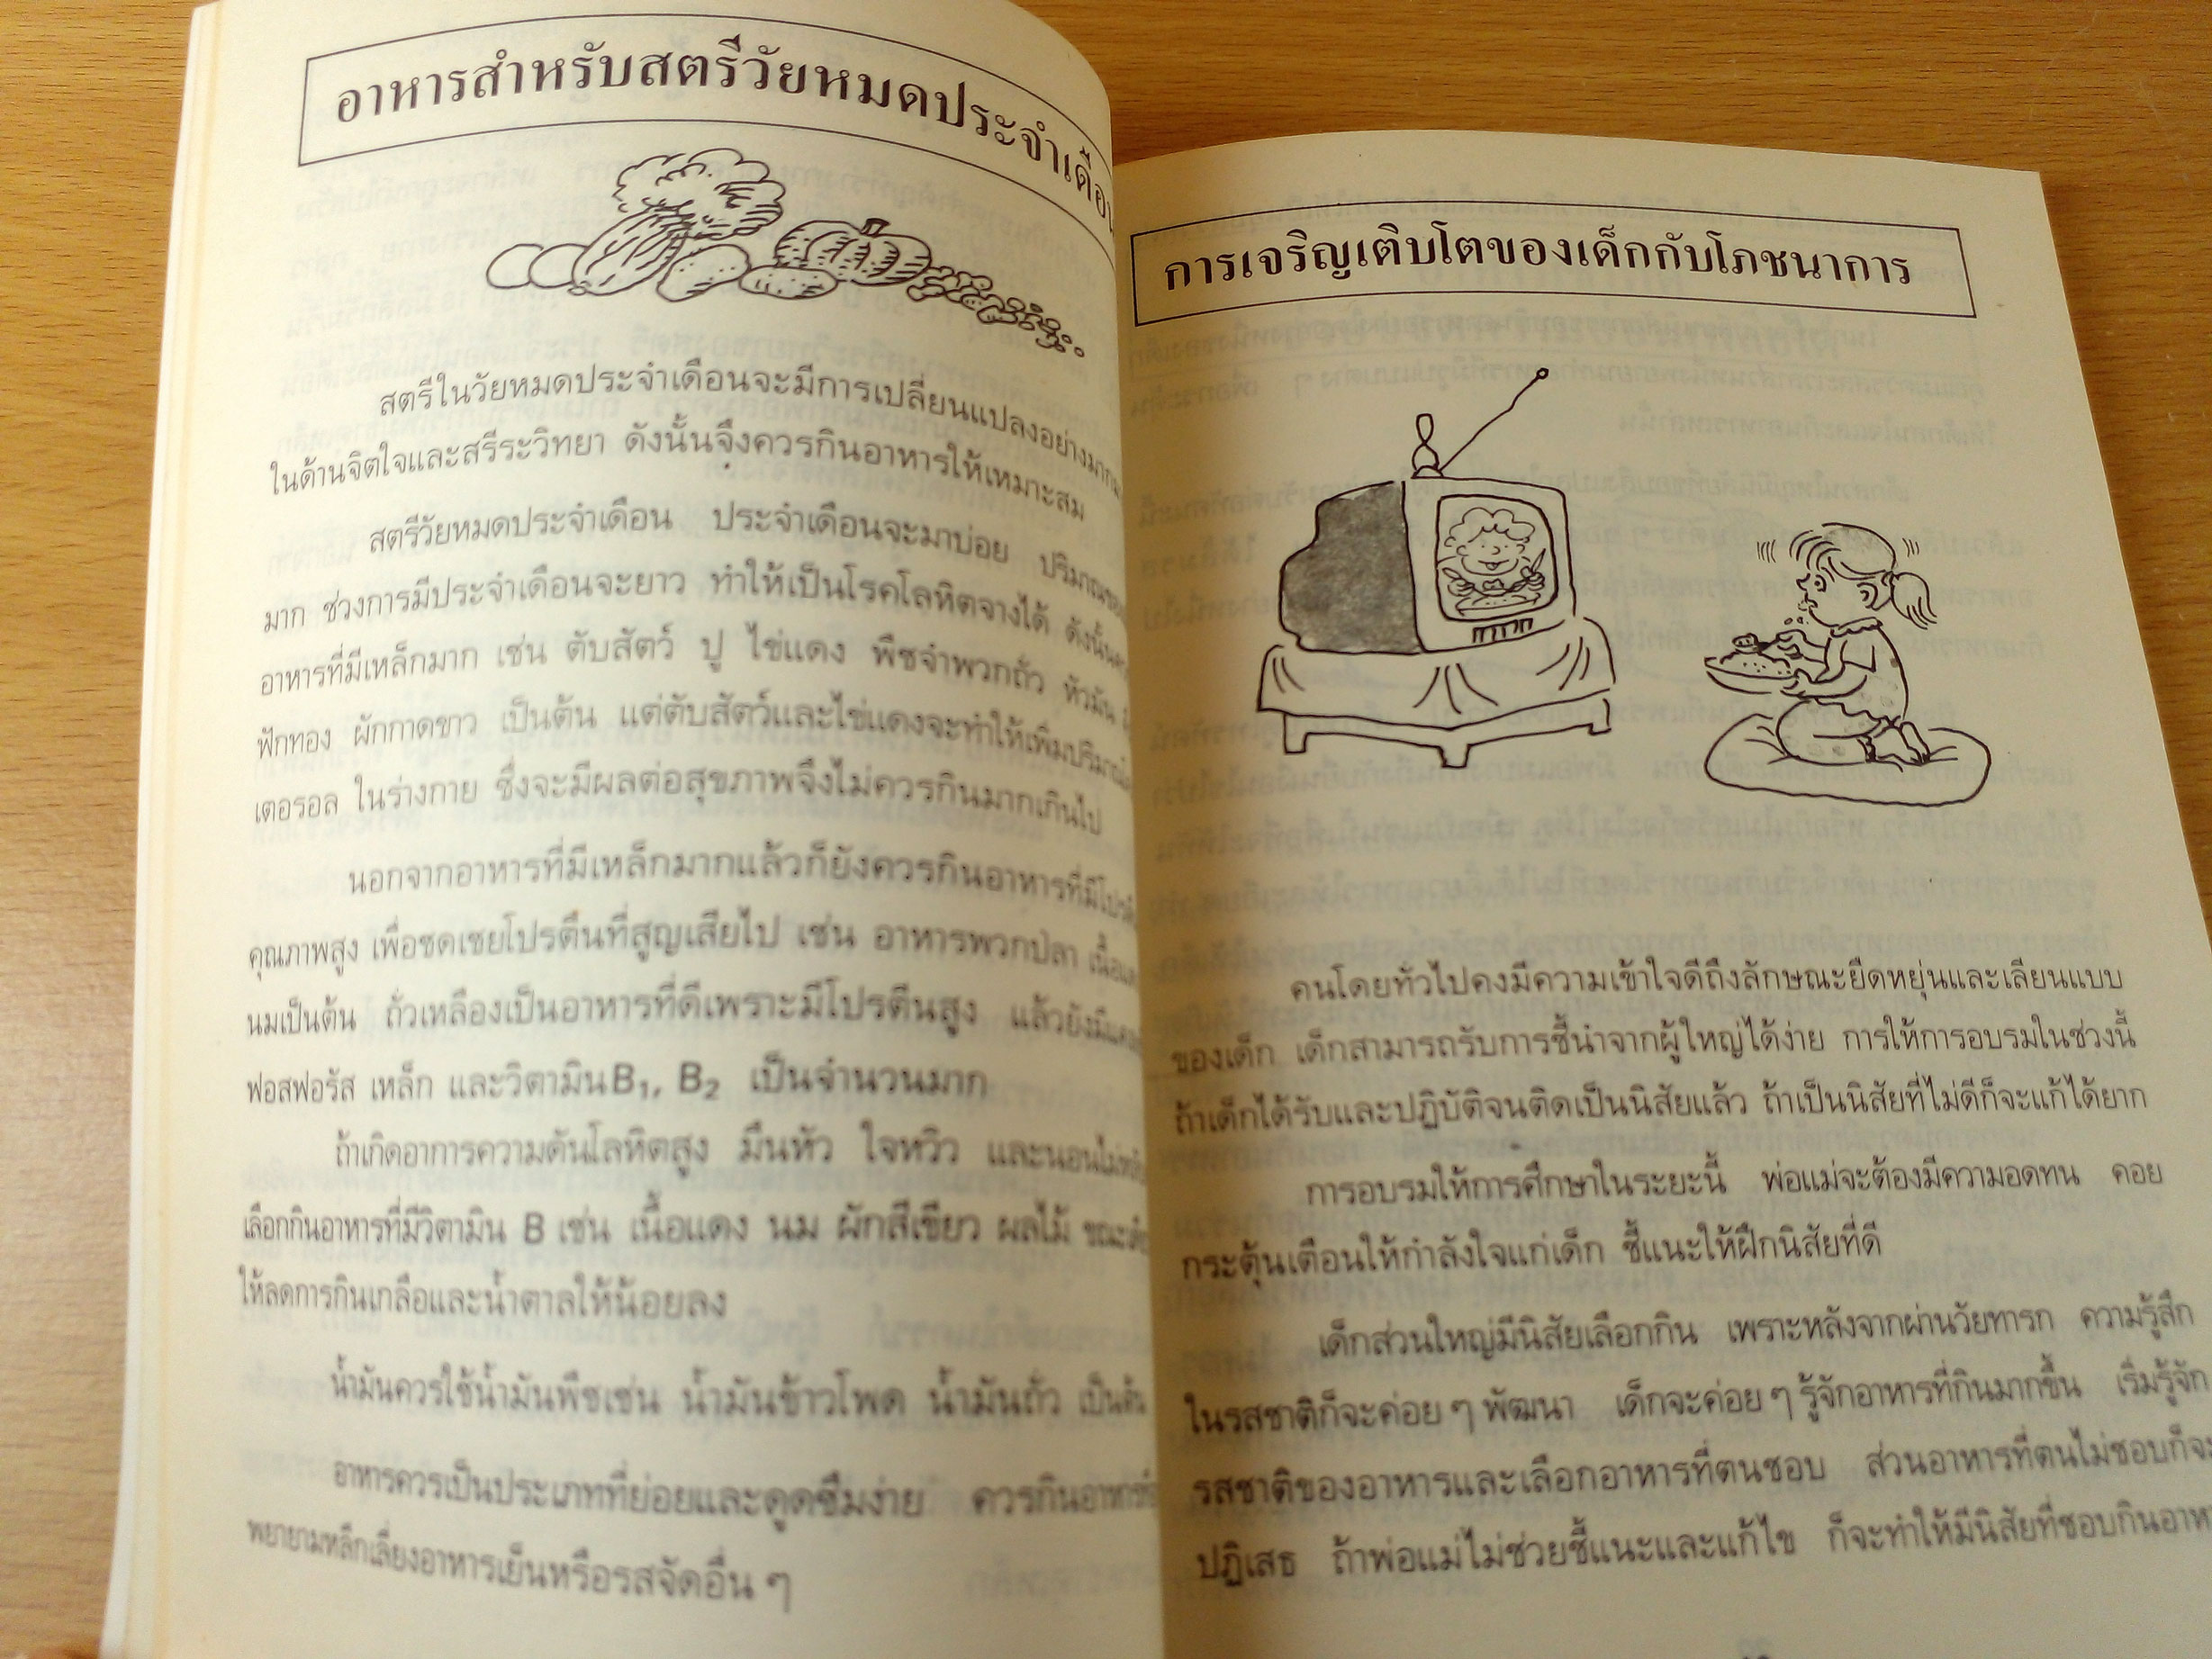 อาหารสำหรับสตรีวัยหมดประจำเดือน
สตรีในวัยหมดประจำเดือนจะมีการเปลี่ยนแปลงอย่างมาก
ในด้านจิตใจและสรีระวิทยา ดังนั้นจึงควรกินอาหารให้เหมาะสม
สตรีวัยหมดประจำเดือน ประจำเดือนจะมาบ่อย ปริมาณ
มาก ช่วงการมีประจำเดือนจะยาว ทำให้เป็นโรคโลหิตจางได้ ดังนั้น
อาหารที่มีเหล็กมาก เช่น ตับสัตว์ ปู ไข่แดง พืชจำพวกถั่ว หัวมัน
ฟักทอง ผักกาดขาว เป็นต้น แต่ตับสัตว์และไข่แดงจะทำให้เพิ่มปริมาณ
เตอรอล ในร่างกาย ซึ่งจะมีผลต่อสุขภาพจึงไม่ควรกินมากเกินไป
นอกจากอาหารที่มีเหล็กมากแล้วก็ยังควรกินอาหารที่มี
คุณภาพสูง เพื่อชดเชยโปรตีนที่สูญเสียไป เช่น อาหารพวกปลา
นมเป็นต้น ถั่วเหลืองเป็นอาหารที่ดีเพราะมีโปรตีนสูง แล้วยังมี
ฟอสฟอรัส เหล็ก และวิตามิน B₁, B₂ เป็นจำนวนมาก
ถ้าเกิดอาการความดันโลหิตสูง มึนหัว ใจหวิว และนอนไม่
เลือกกินอาหารที่มีวิตามิน B เช่น เนื้อแดง นม ผักสีเขียว ผลไม้
ให้ลดการกินเกลือและน้ำตาลให้น้อยลง
น้ำมันควรใช้น้ำมันพืชเช่น น้ำมันข้าวโพด น้ำมันถั่ว เป็นต้น
อาหารควรเป็นประเภทที่ย่อยและดูดซึมง่าย ควรกินอาหาร
พยายามหลีกเลี่ยงอาหารเย็นหรือรสจัดอื่น ๆ
การเจริญเติบโตของเด็กกับโภชนาการ
คนโดยทั่วไปคงมีความเข้าใจดีถึงลักษณะยืดหยุ่นและเลียนแบบ
ของเด็ก เด็กสามารถรับการชี้นำจากผู้ใหญ่ได้ง่าย การให้การอบรมในช่วงนี้
ถ้าเด็กได้รับและปฏิบัติจนติดเป็นนิสัยแล้ว ถ้าเป็นนิสัยที่ไม่ดีก็จะแก้ได้ยาก
การอบรมให้การศึกษาในระยะนี้ พ่อแม่จะต้องมีความอดทน คอย
กระตุ้นเตือนให้กำลังใจแก่เด็ก ชี้แนะให้ฝึกนิสัยที่ดี
เด็กส่วนใหญ่มีนิสัยเลือกกิน เพราะหลังจากผ่านวัยทารก ความรู้สึก
ในรสชาติก็จะค่อย ๆ พัฒนา เด็กจะค่อย ๆ รู้จักอาหารที่กินมากขึ้น เริ่มรู้จัก
รสชาติของอาหารและเลือกอาหารที่ตนชอบ ส่วนอาหารที่ตนไม่ชอบก็จะ
ปฏิเสธ ถ้าพ่อแม่ไม่ช่วยชี้แนะและแก้ไข ก็จะทำให้มีนิสัยที่ชอบกิน